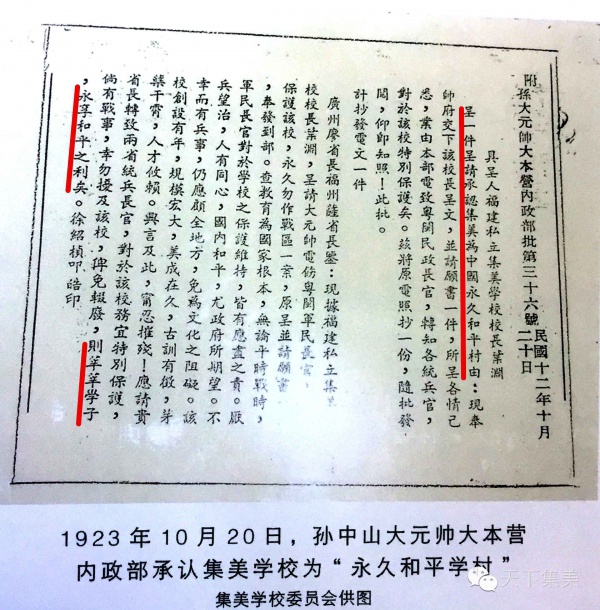 附孫大元帥大本營內政部批第三十六號
民國十二年十月
二十日
具呈人福建私立集美學校校長葉淵
呈一件呈請承認集美為中國永久和平村由:現奉
帥府交下該校長呈文,並請願書一件,所呈各情已
悉,業由本部電致粵閩民政長官,轉知各統兵官,
對於該校特別保護矣。茲將原電照抄一份,隨批發
閱,仰即知照!此批。
計抄發電文一件
廣州廖省長福州薩省長鑒:現據福建私立集美
校校長葉淵,呈請大元帥電飭粵閩軍民長官,
保護該校,永久勿作戰區一案,原呈並請願書
,奉發到部。查教育為國家根本,無論平時戰時,
軍民長官對於學校之保護維持,皆有應盡之責。厭
兵望治,人有同心,國內和平,尤政府所期望。不
幸而有兵事,仍應顧全地方,免為文化之阻礙。該
校創設有年,規模宏大,美成在久,古訓有徵,芽
蘗干霄,人才攸賴。興言及此,甯忍摧殘!應請貴
省長轉致兩省統兵長官,對於該校務宜特別保護,
倘有戰事,幸勿擾及該校,俾免輟廢,則莘莘學子
,永享和平之利矣。徐紹楨叩 皓印
1923年10月20日,孙中山大元帅大本营
内政部承认集美学校为“永久和平学村”
集美学校委员会供图
天下集美